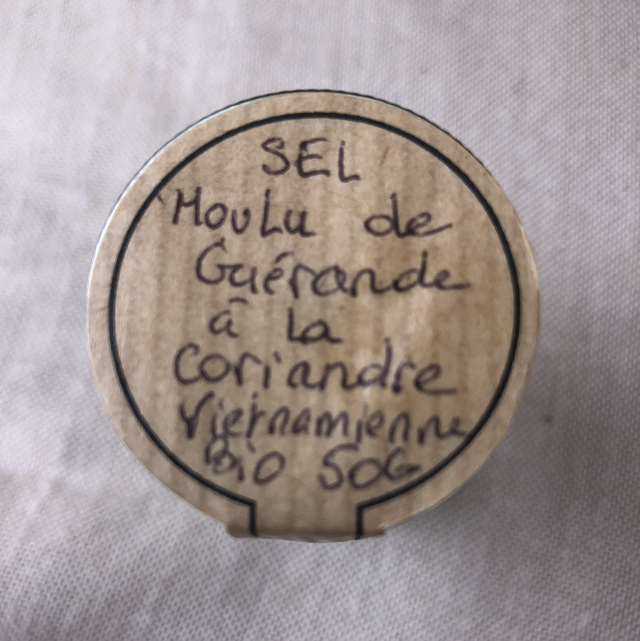 SEL
Moulu de
Guérande
à la
Coriandre
Vietnamienne
BiO 50G